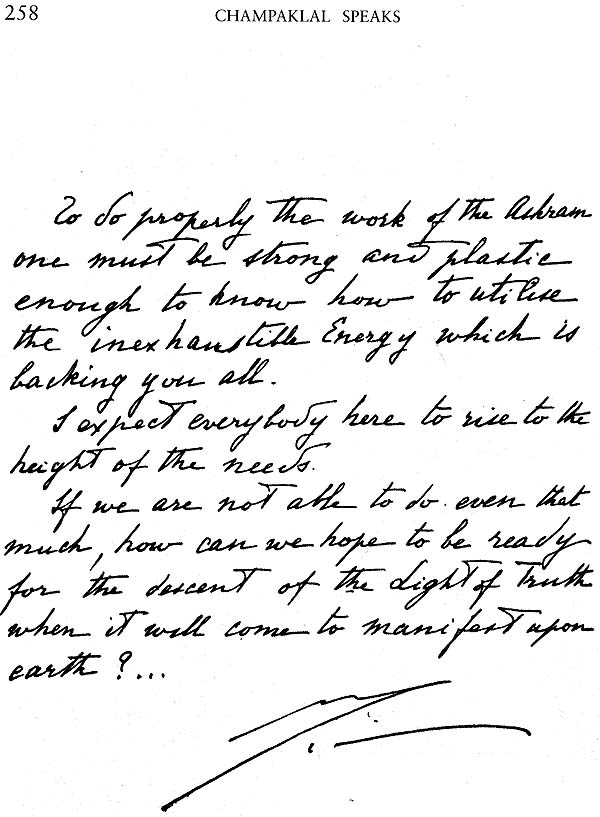 258
CHAMPAKLAL SPEAKS
To do properly the work of the Ashram
one must be strong and plastic
enough to know how to utilise
the inexhaustible Energy which is
backing you all.
I expect everybody here to rise to the
height of the needs.
If we are not able to do even that
much, how can we hope to be ready
for the descent of the Light of Truth
when it will come to manifest upon
earth ?...